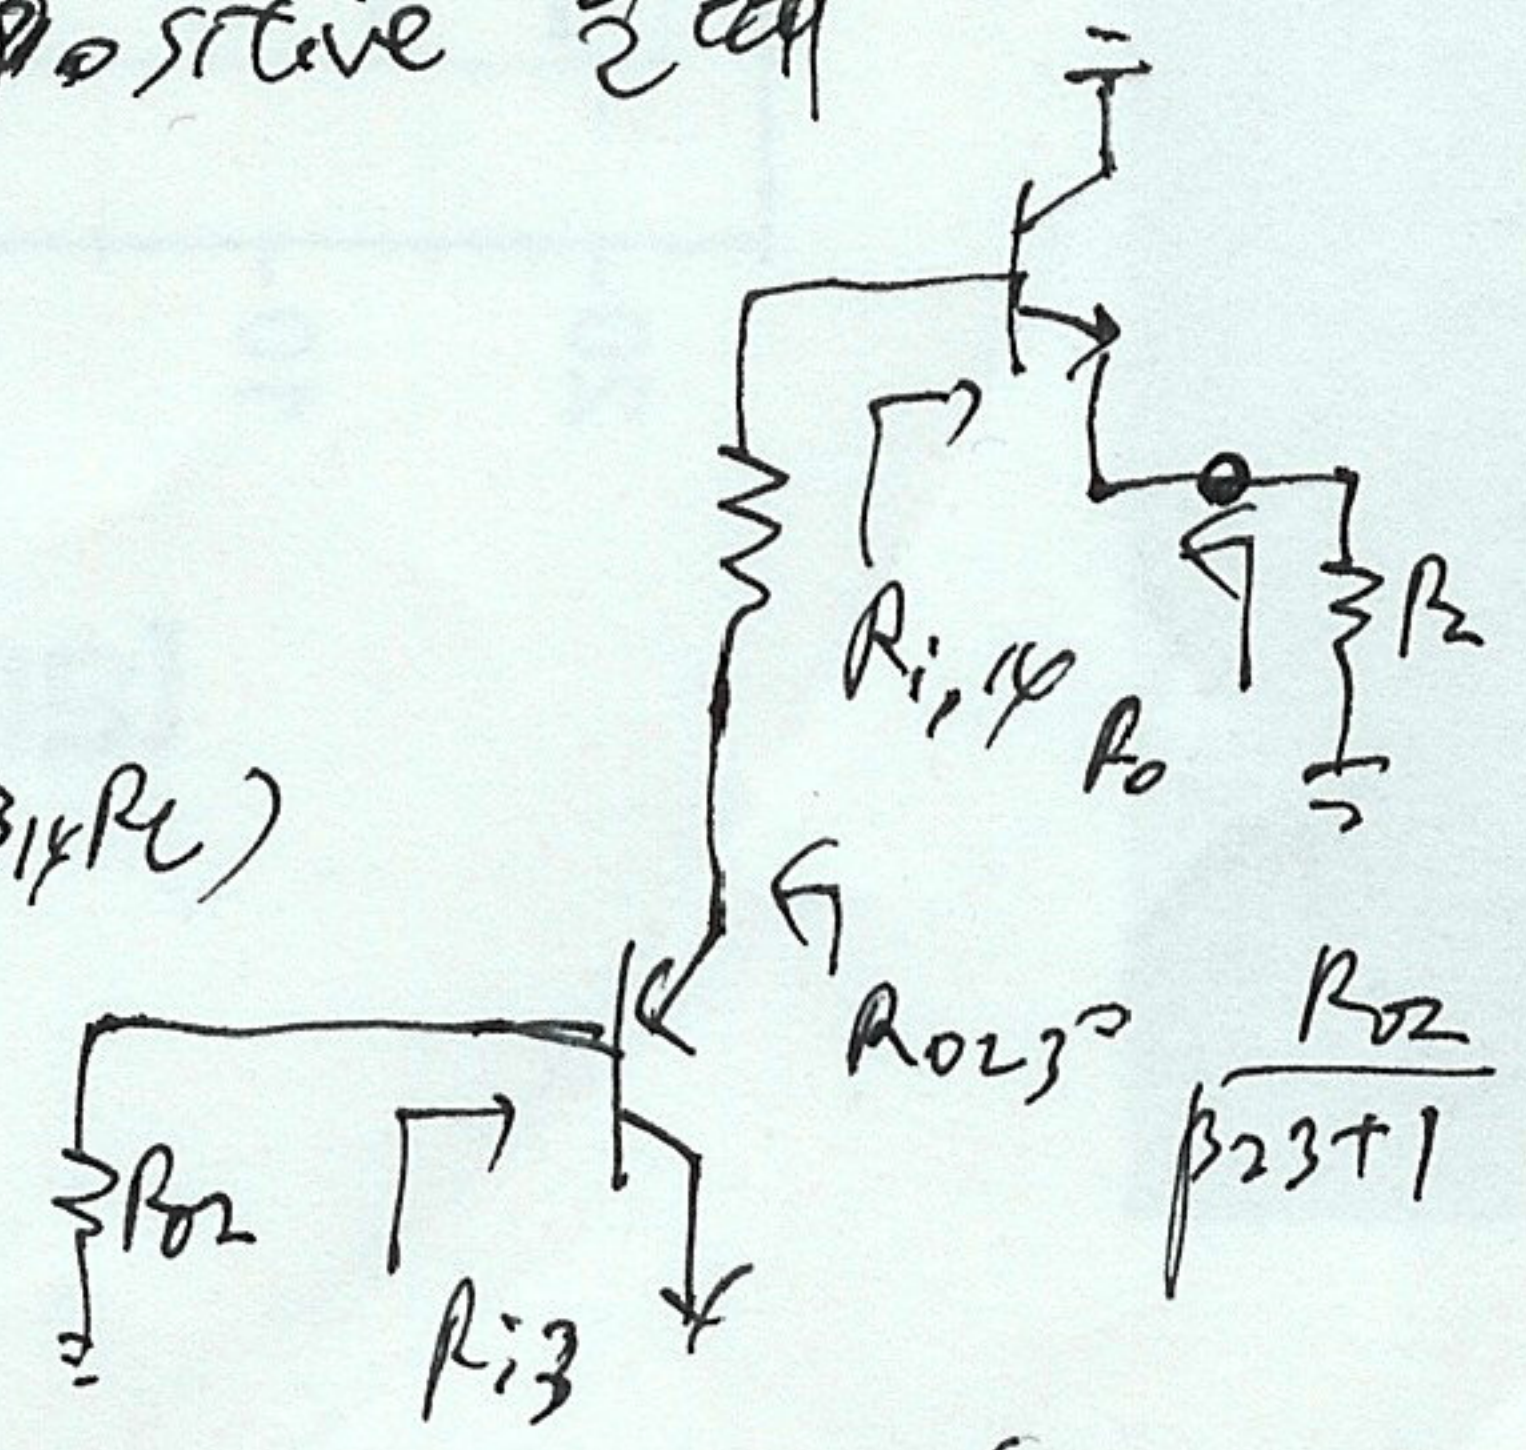 Positive
Ri,14
RL
Ro
β14RL)
Ro23=
Ro2
β23+1
Ro2
Ri3